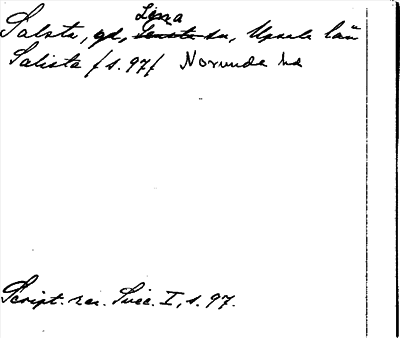 Salsta, gd, Lena sn, Upsala län
Salista (s. 97) Norunda hd
Script. rer. Svec. I, s. 97.